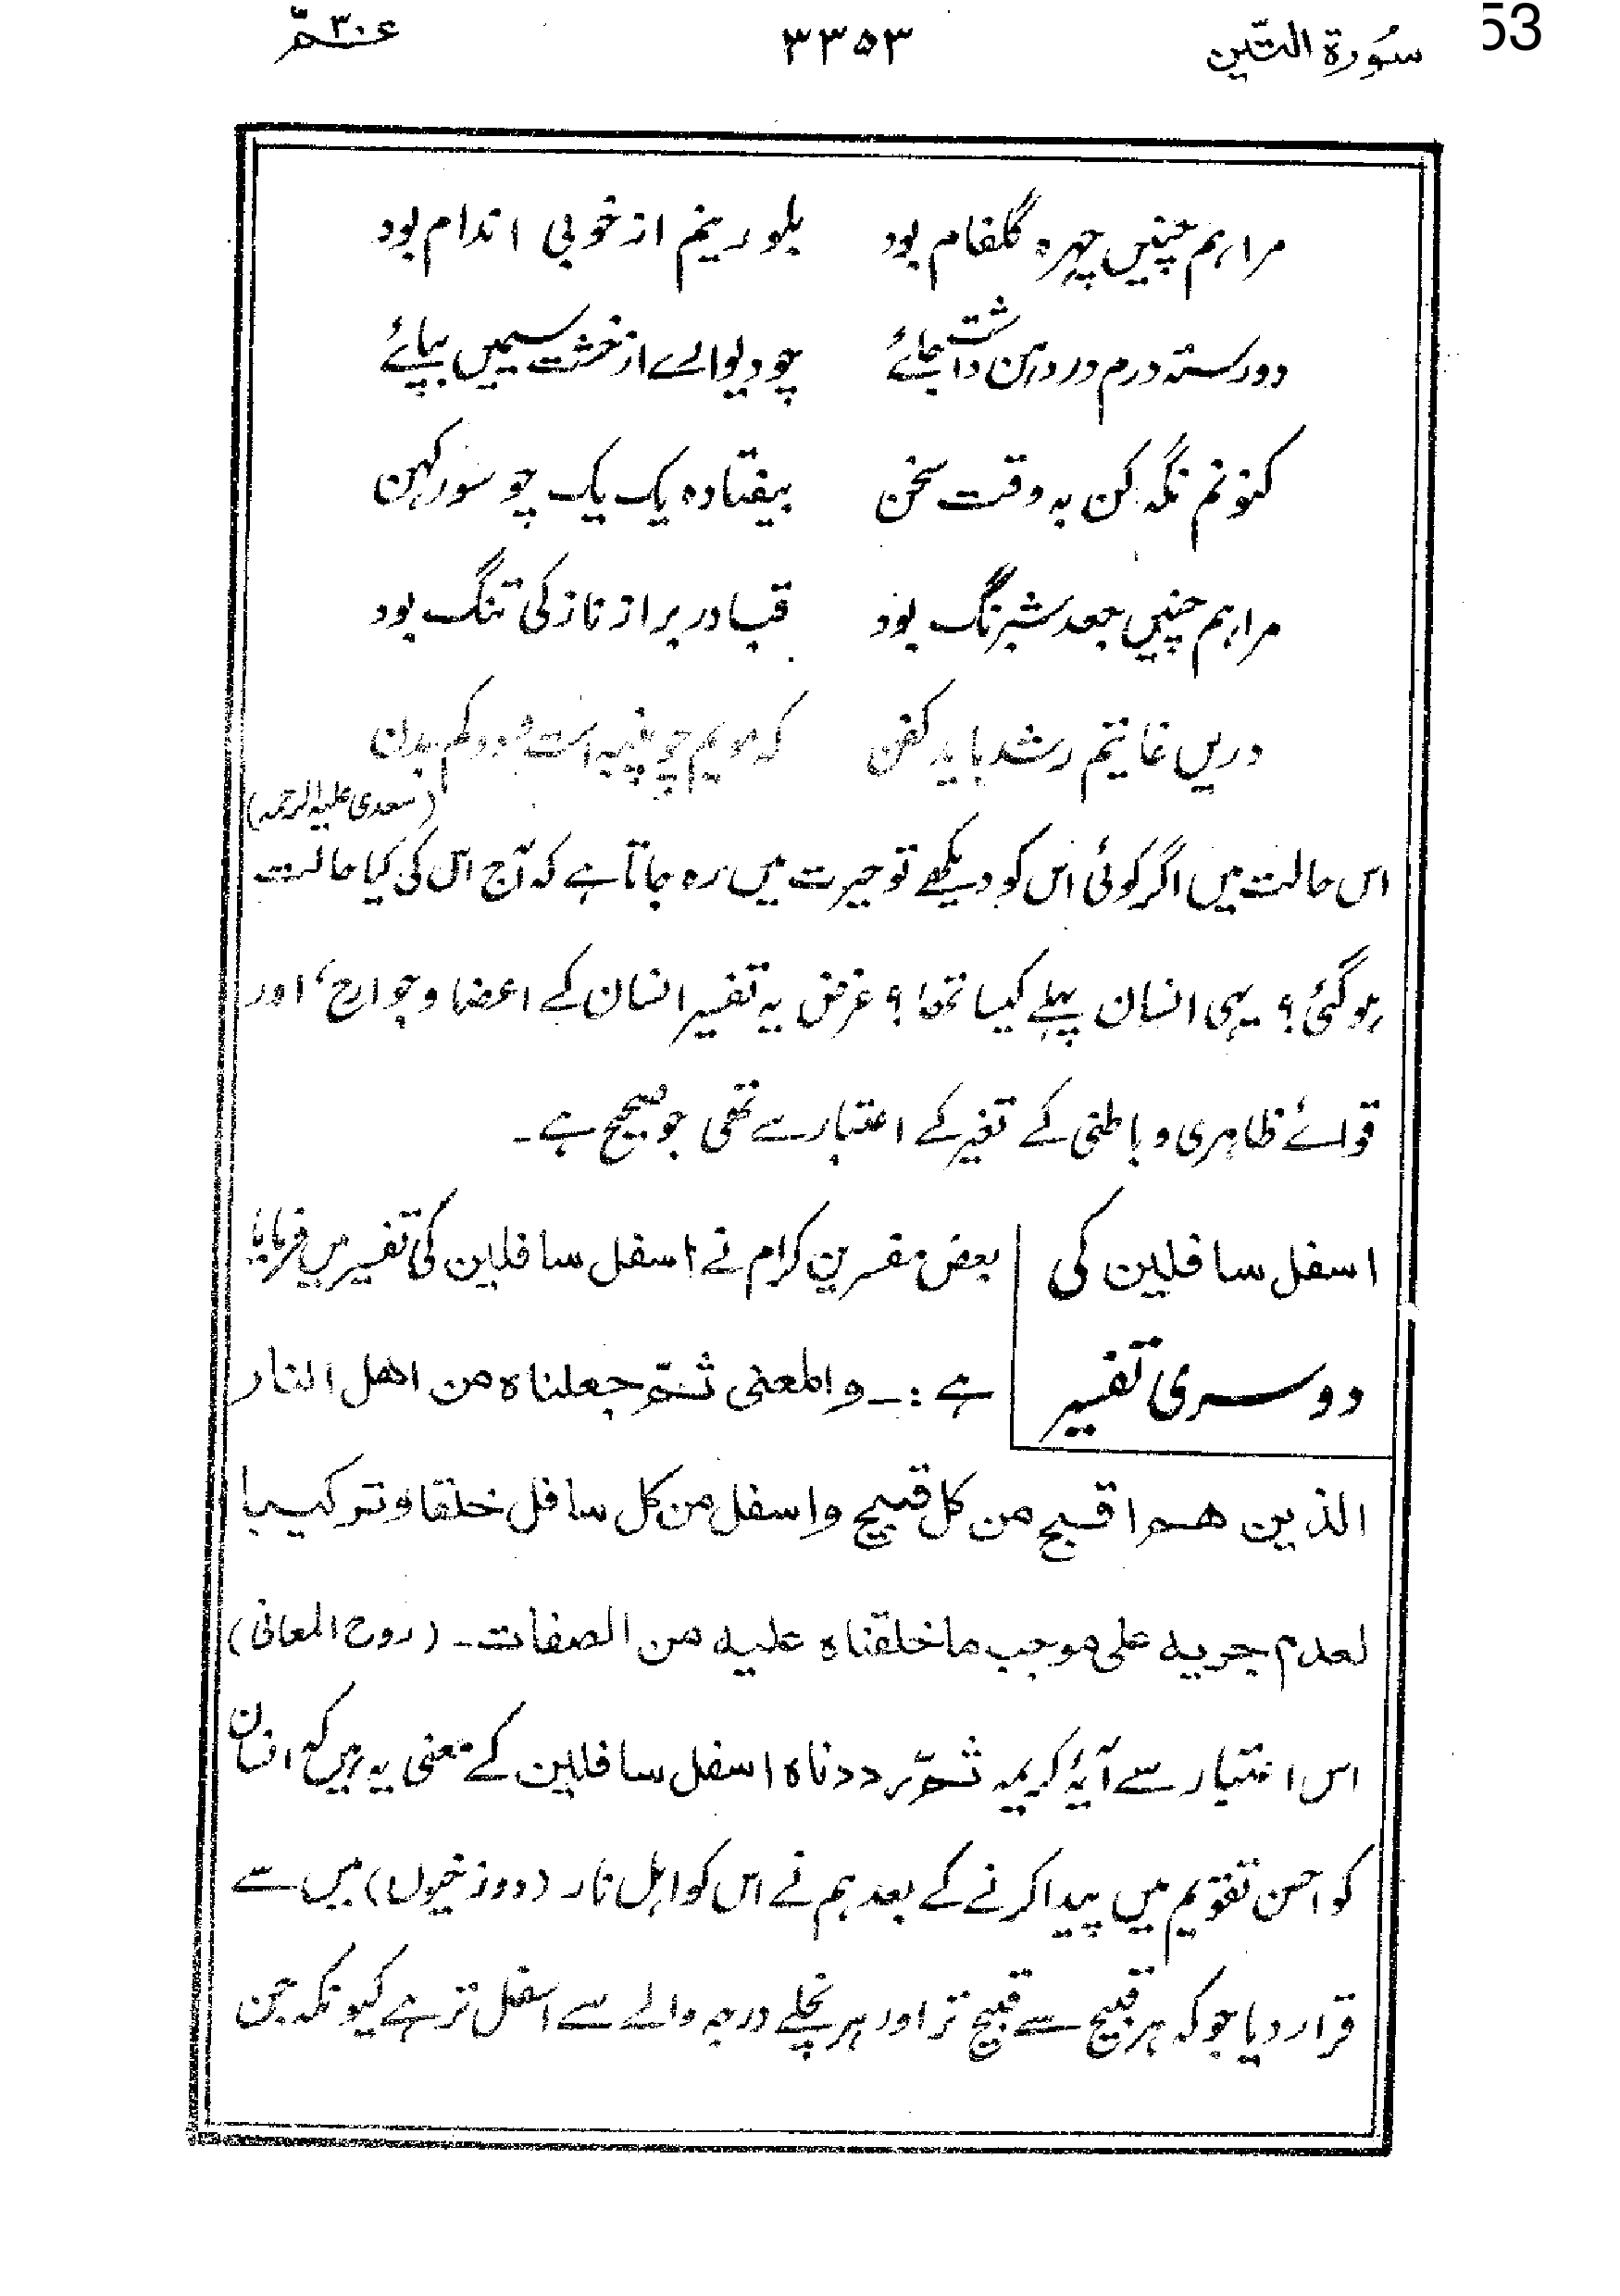 53
سُورة التّین ۳۳۵۳ عمّ ۳۰
مرا ہم چنیں چہرہ گلفام بود بلورینم از خوبی اندام بود
دو رستہ درم در دہن داشت جائے چو دیوارے از خشت سیمیں بپائے
کنونم نگہ کن بہ وقت سخن بیفتادہ یک یک چو سور کہن
مرا ہم چنیں جعد شبرنگ بود قبا در بر از نازکی تنگ بود
دریں غایتم رشد باید کفن کہ مویم چو پنبہ است و دوکم بدن
(سعدی علیہ الرحمہ)
اس حالت میں اگر کوئی اس کو دیکھے تو حیرت میں رہ جاتا ہے کہ آج اس کی کیا حالت
ہو گئی؟ یہی انسان پہلے کیسا تھا؟ غرض یہ تفسیر انسان کے اعضا و جوارح، اور
قوائے ظاہری و باطنی کے تغیر کے اعتبار سے تھی جو صحیح ہے۔
اسفل سافلین کی بعض مفسرین کرام نے اسفل سافلین کی تفسیر میں فرمایا
دوسری تفسیر ہے :۔ والمعنی ثمّ جعلناه من اهل النار
الذین هم اقبح من کل قبیح واسفل من کل سافل خلقا وترکیبا
لعدم جریہ علی موجب ما خلقناه علیہ من الصفات۔ (روح المعانی)
اس اعتبار سے آیۂ کریمہ ثمّ رددناه اسفل سافلین کے معنی یہ ہیں کہ انسان
کو احسن تقویم میں پیدا کرنے کے بعد ہم نے اس کو اہل نار (دوزخیوں) میں سے
قرار دیا جو کہ ہر قبیح سے قبیح تر اور ہر نچلے درجہ والے سے اسفل تر ہے کیونکہ جن